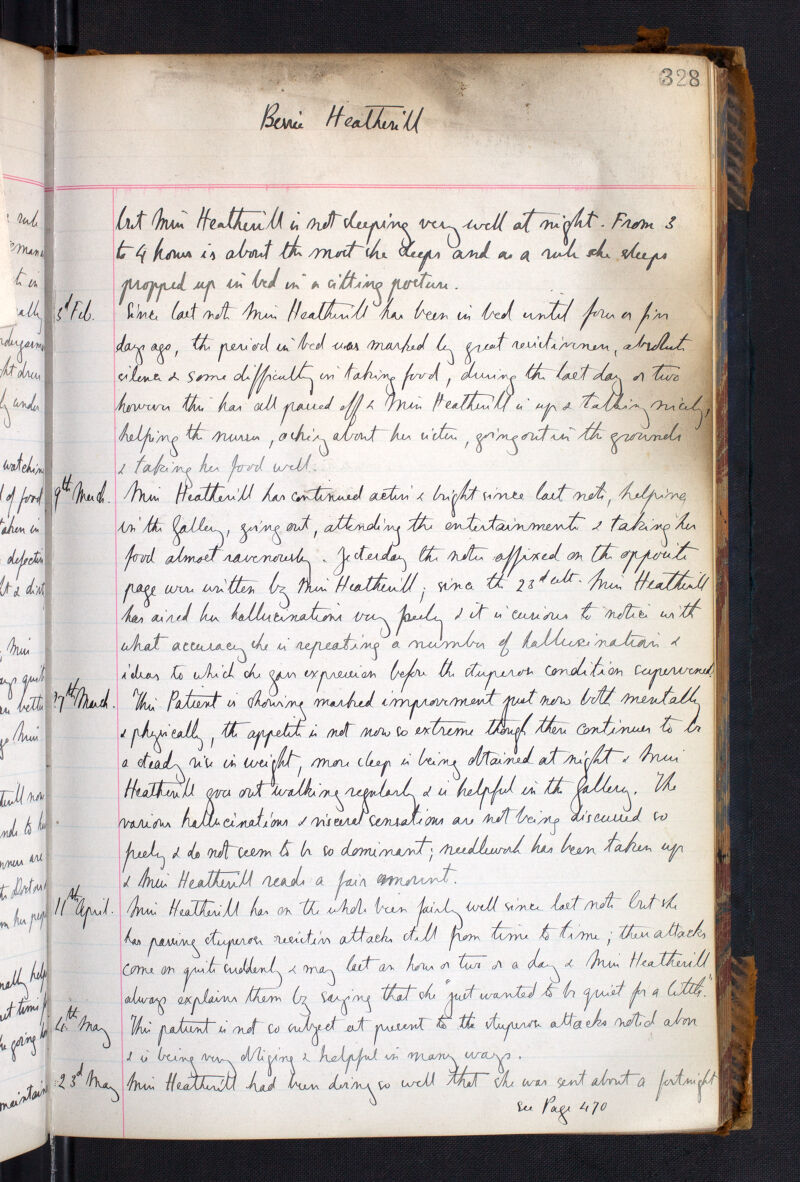 328
Bessie Heatherill
but Miss Heatherill is not sleeping very well at night. From 3
to 4 hours is about the most she sleeps and as a rule she sleeps
propped up in bed in a sitting posture.
3d Feb. Since last note Miss Heatherill has been in bed until four or five
days ago, the period in bed was marked by great resistiveness, absolute
silence & some difficulty in taking food, during the last day or two
however this has all passed off & Miss Heatherill is up & talking nicely,
helping the nurses, asking about her sister, going out in the grounds
& taking her food well.
9th March. Miss Heatherill has continued active & bright since last note, helping
in the Gallery, going out, attending the entertainments & taking her
food almost ravenously. Yesterday the notes affixed on the opposite
page were written by Miss Heatherill; since the 23d ult. Miss Heatherill
has aired her hallucinations very freely & it is curious to notice with
what accuracy she is repeating a number of hallucinations &
ideas to which she gave expression before the stuporose condition supervened.
27th March. This Patient is showing marked improvement just now both mentally
& physically, the appetite is not now so extreme though there continues to be
a steady rise in weight, more sleep is being obtained at night & Miss
Heatherill goes out walking regularly & is helpful in the Gallery. The
various hallucinations & visceral sensations are not being discussed so
freely & do not seem to be so dominant; needlework has been taken up
& Miss Heatherill reads a fair amount.
11th April. Miss Heatherill has on the whole been fairly well since last note but she
has passing stuporose resistive attacks still from time to time; these attacks
come on quite suddenly & may last an hour or two or a day & Miss Heatherill
always explains them by saying that she "just wanted to be quiet for a little."
4th May This patient is not so subject at present to the stuporose attacks noted above
& is being very obliging & helpful in many ways.
23d May Miss Heatherill had been doing so well that she was sent about a fortnight
See Page 470